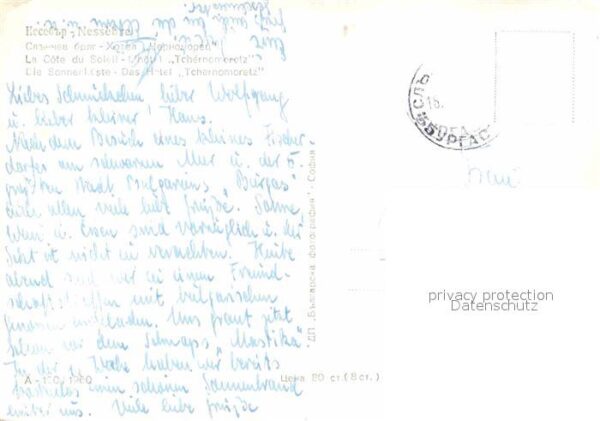 Несебър, Nessebre
Слънчев бряг - Хотел „Черноморец"
La Côte du Soleil - L'hôtel „Tchernomoretz"
Die Sonnenküste - Das Hotel „Tchernomoretz"
Liebes Schmückchen lieber Wolfgang
u. lieber kleiner Hans.
Nach dem Besuch eines kleines Fischer-
dorfes am schwarzen Meer u. der 5.
größten Stadt Bulgariens „Burgas"
euch allen viele liebe Grüße. Sonne,
Wein u. Essen sind vorzüglich u. der
Sekt ist nicht zu verachten. Heute
abend sind wir zu einem Freund-
schaftstreffen mit bulgarischen
Genossen eingeladen. Uns graut jetzt
schon vor dem Schnaps „Mastika"
In der 1. Woche haben wir bereits
kostenlos einen schönen Sonnenbrand
hinter uns. Viele liebe Grüße
ДП „Българска фотография" - София
А - 1960
Цена 80 ст. (8 ст.)
18.
БУРГАС
privacy protection
Datenschutz